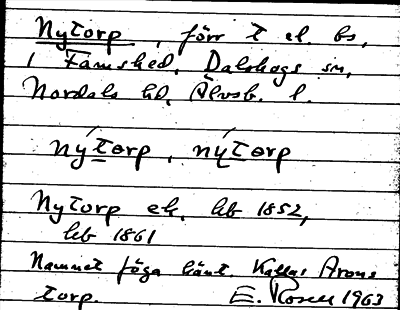 Nytorp, förr t el. bs,
i Tamshed, Dalskogs sn,
Nordals hd, Älvsb. l.
nýtorp, nýtorp
Nytorp ek. hfb 1852,
hfb 1861
Namnet föga känt. Kallas Arons
torp. E. Rosell 1963